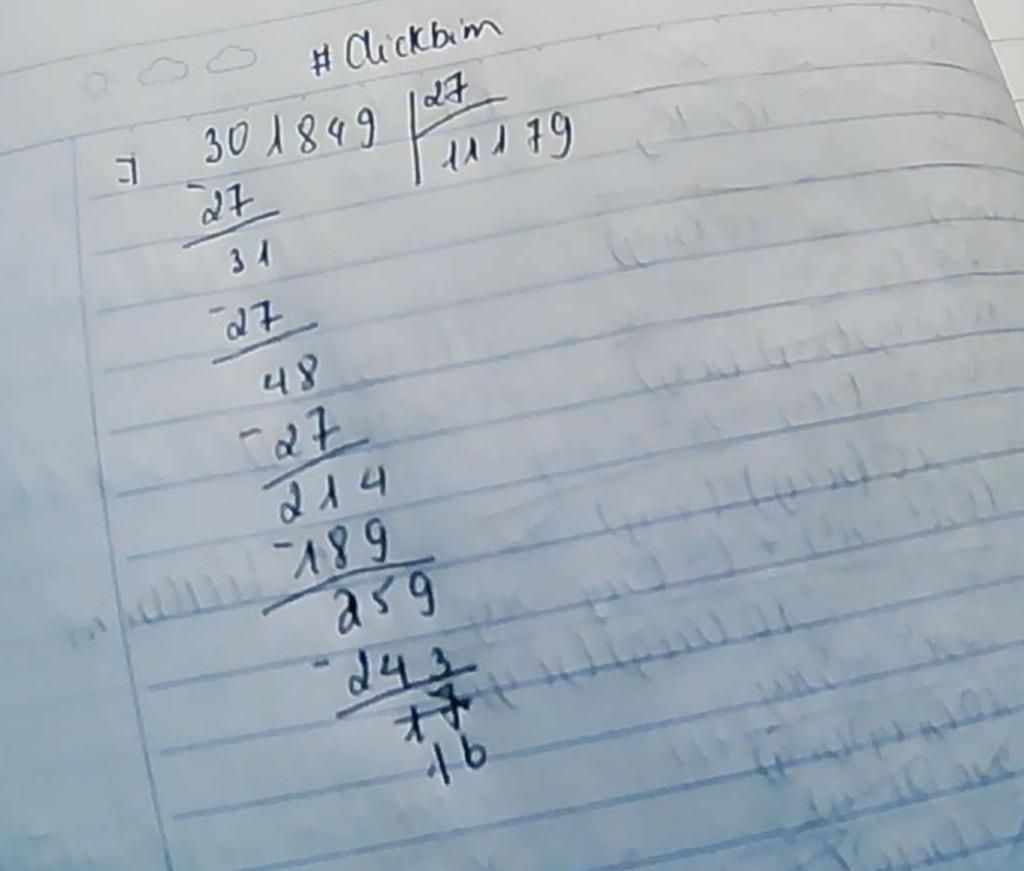 #Clickbim
301849 27
11179
-27
31
-27
48
-27
214
-189
259
-243
17
16